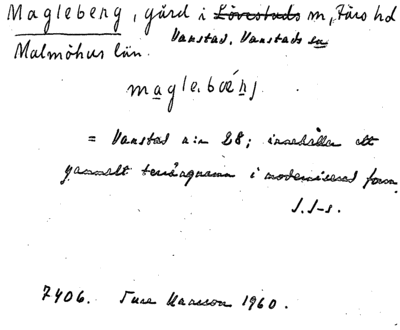 Magleberg, gård i Lövestads m, Färs hd
Vanstad, Vanstads sn
Malmöhus län.
magleboæ´rj
= Vanstad n:r 28; innehåller ett
gammalt terrängnamn i moderniserad form.
J.J-s.
7406. Ture 1960.